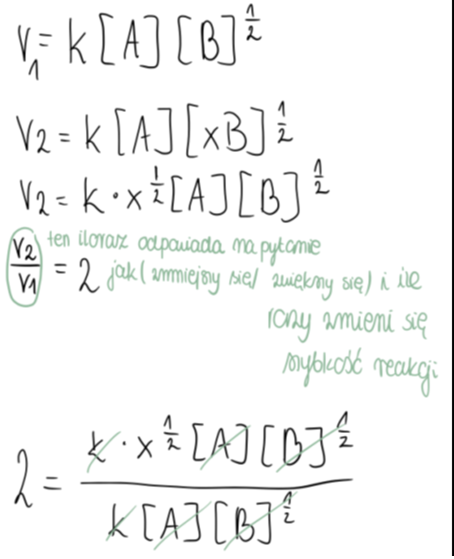 V₁ = k[A][B]^½
V₂ = k[A][xB]^½
V₂ = k · x^½[A][B]^½
V₂/V₁ = 2 ten iloraz odpowiada na pytanie
jak (zmniejszy się/ zwiększy się) i ile
razy zmieni się
szybkość reakcji
2 = k · x^½[A][B]^½ / k[A][B]^½